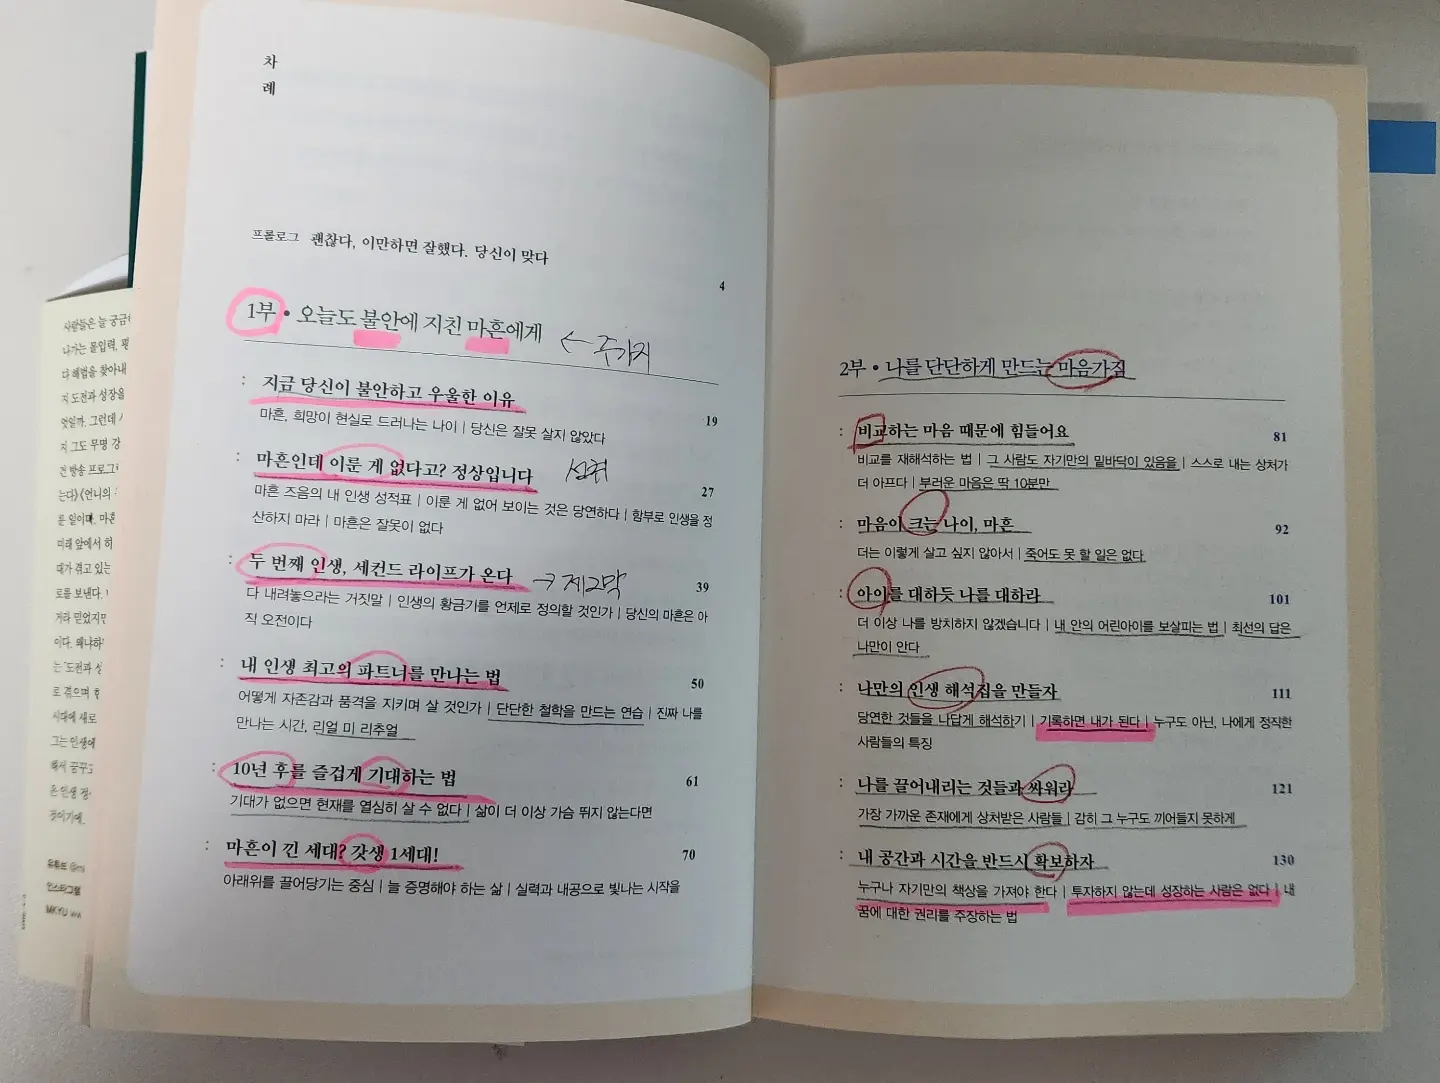 차
례
프롤로그 괜찮다, 이만하면 잘했다. 당신이 맞다
4
1부 • 오늘도 불안에 지친 마흔에게
←
: 지금 당신이 불안하고 우울한 이유 19
마흔, 희망이 현실로 드러나는 나이 | 당신은 잘못 살지 않았다
: 마흔인데 이룬 게 없다고? 정상입니다 27
마흔 즈음의 내 인생 성적표 | 이룬 게 없어 보이는 것은 당연하다 | 함부로 인생을 정
산하지 마라 | 마흔은 잘못이 없다
: 두 번째 인생, 세컨드 라이프가 온다 → 제2막 39
다 내려놓으라는 거짓말 | 인생의 황금기를 언제로 정의할 것인가 | 당신의 마흔은 아
직 오전이다
: 내 인생 최고의 파트너를 만나는 법 50
어떻게 자존감과 품격을 지키며 살 것인가 | 단단한 철학을 만드는 연습 | 진짜 나를
만나는 시간, 리얼 미 리추얼
: 10년 후를 즐겁게 기대하는 법 61
기대가 없으면 현재를 열심히 살 수 없다 | 삶이 더 이상 가슴 뛰지 않는다면
: 마흔이 낀 세대? 갓생 1세대! 70
아래위를 끌어당기는 중심 | 늘 증명해야 하는 삶 | 실력과 내공으로 빛나는 시작을
2부 • 나를 단단하게 만드는 마음가짐
: 비교하는 마음 때문에 힘들어요 81
비교를 재해석하는 법 | 그 사람도 자기만의 밑바닥이 있음을 | 스스로 내는 상처가
더 아프다 | 부러운 마음은 딱 10분만
: 마음이 크는 나이, 마흔 92
더는 이렇게 살고 싶지 않아서 | 죽어도 못 할 일은 없다
: 아이를 대하듯 나를 대하라 101
더 이상 나를 방치하지 않겠습니다 | 내 안의 어린아이를 보살피는 법 | 최선의 답은
나만이 안다
: 나만의 인생 해석집을 만들자 111
당연한 것들을 나답게 해석하기 | 기록하면 내가 된다 | 누구도 아닌, 나에게 정직한
사람들의 특징
: 나를 끌어내리는 것들과 싸워라 121
가장 가까운 존재에게 상처받은 사람들 | 감히 그 누구도 끼어들지 못하게
: 내 공간과 시간을 반드시 확보하자 130
누구나 자기만의 책상을 가져야 한다 | 투자하지 않는데 성장하는 사람은 없다 | 내
꿈에 대한 권리를 주장하는 법